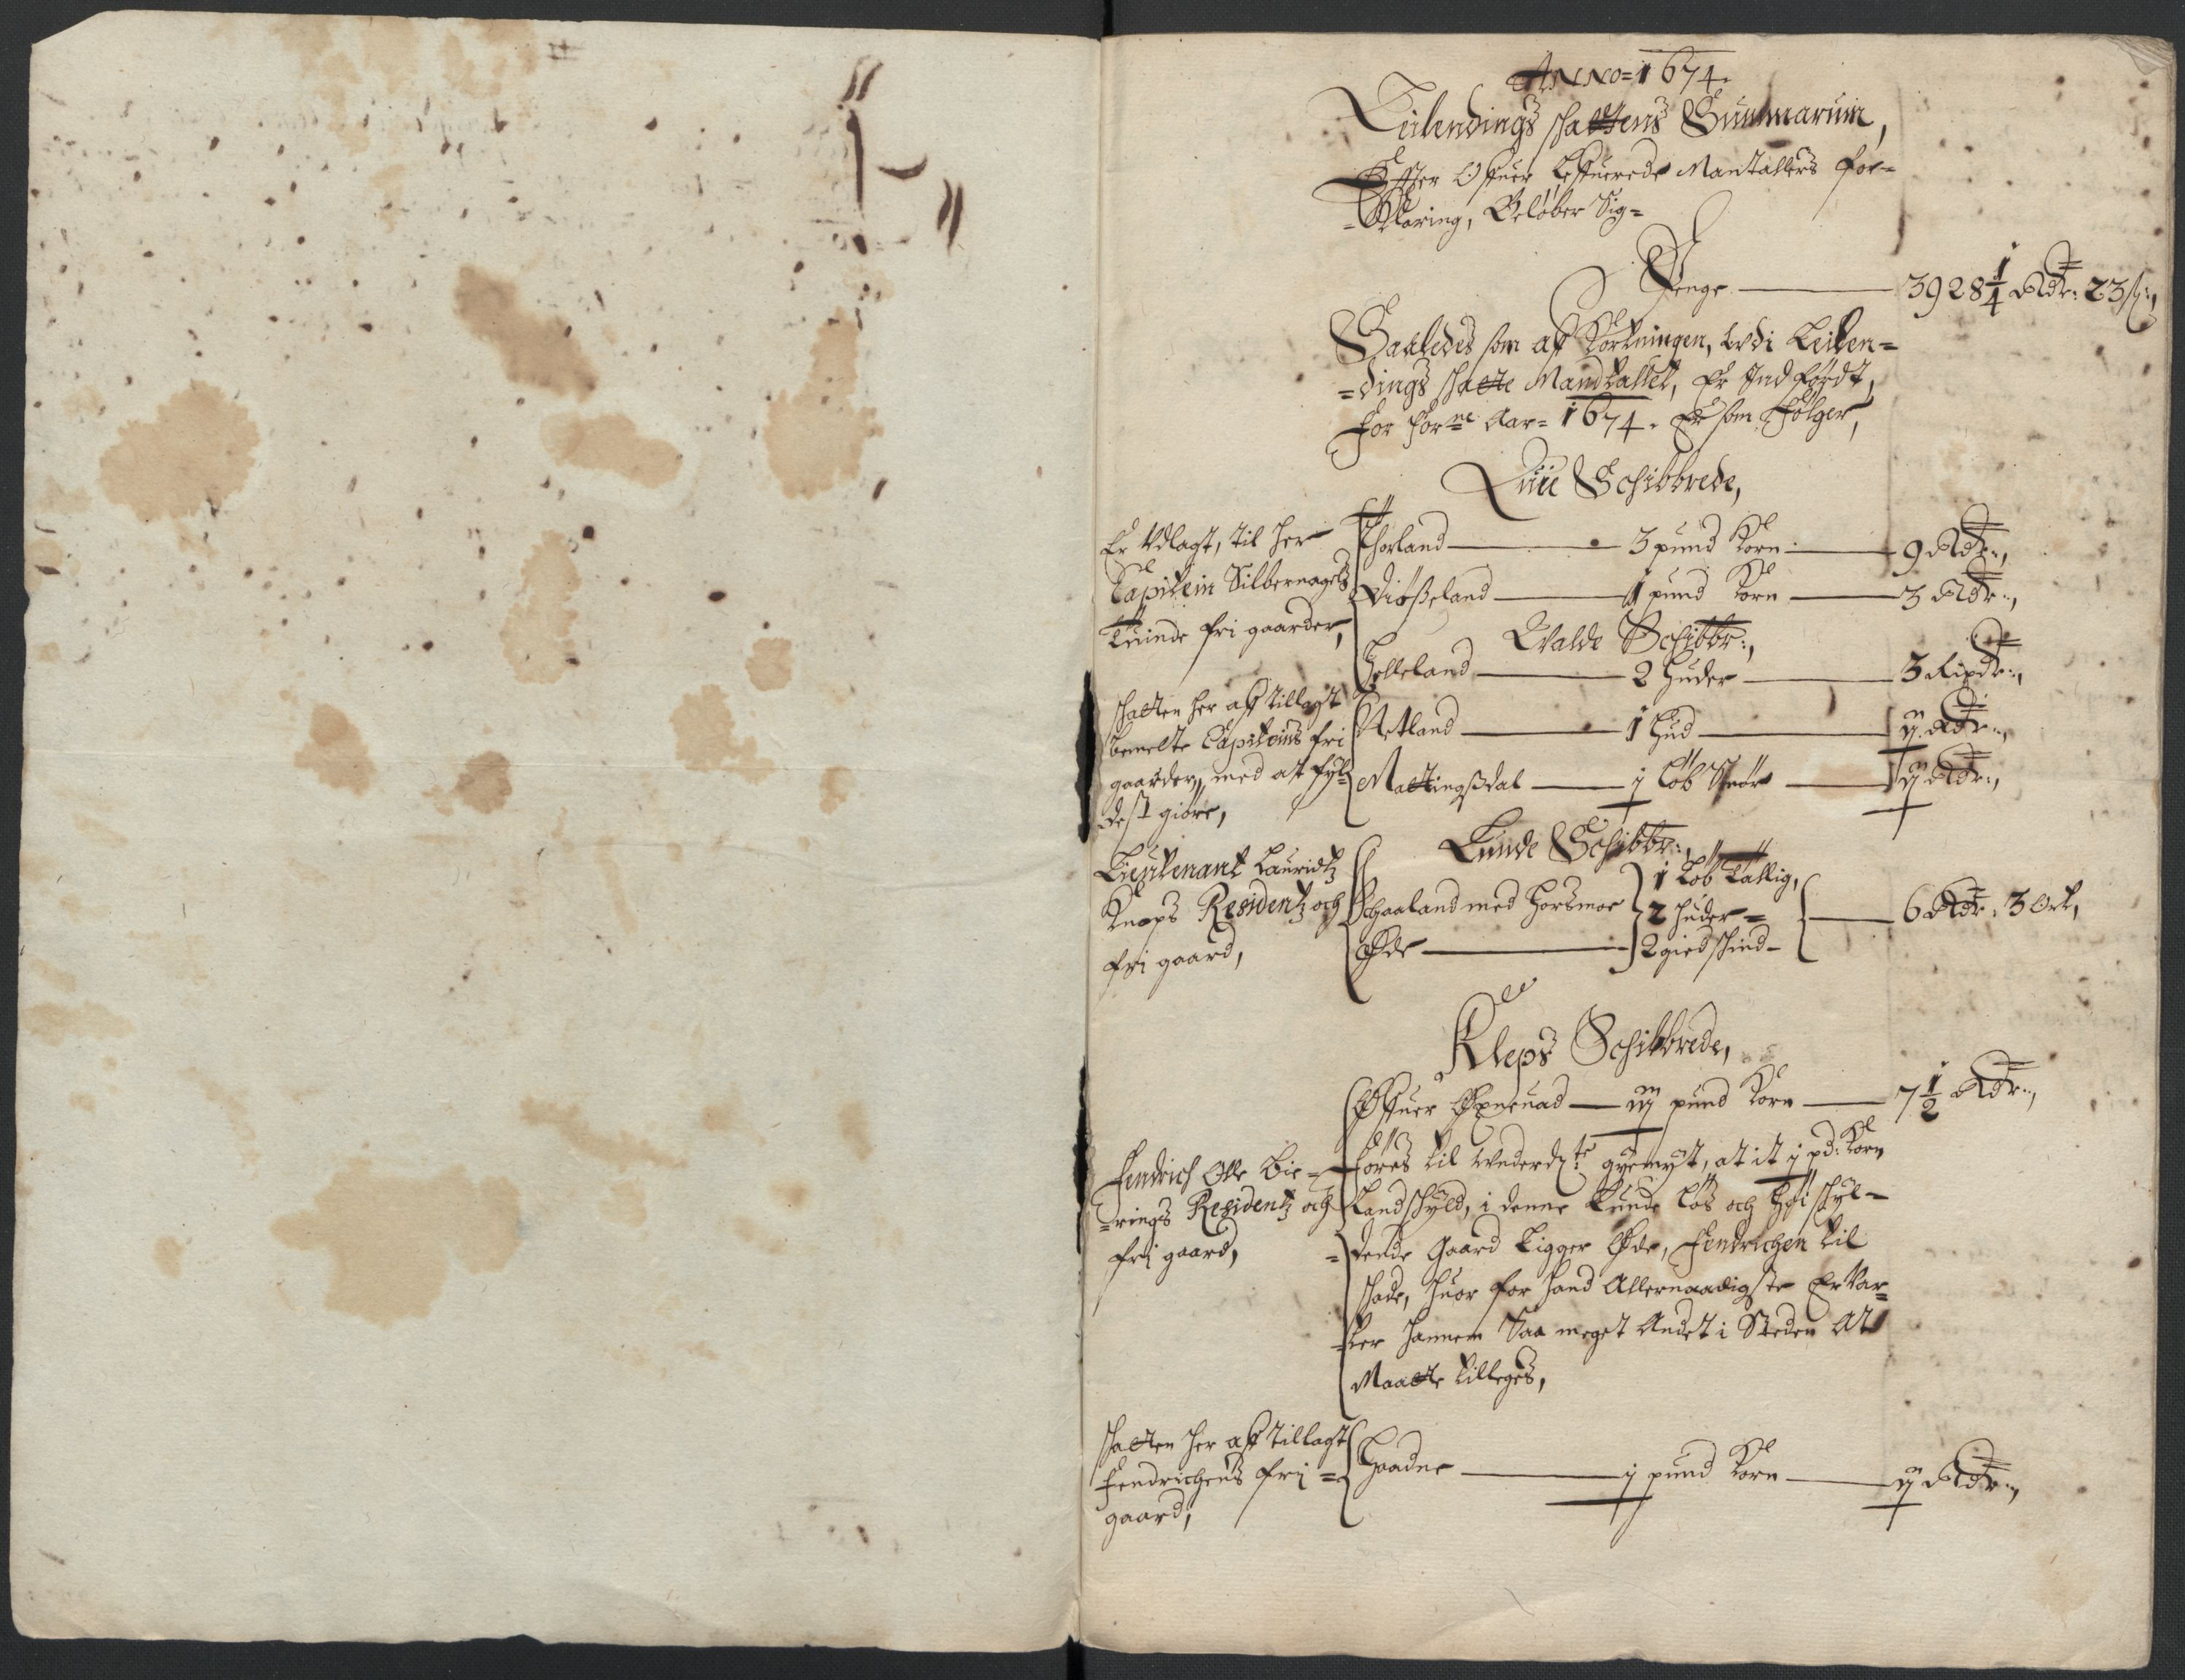 ANNO = 1674.
Leilendings schattens Summarum,
Effter Offuer Leffuerede Mantallers For-
-Klaring, Beløber Sig=
Penge — 3928 1/4 Rdr: 23 ß:,
Saaledes som aff Kortningen, wdi Leilen=
=dings schatte Mandtallet, Er Indførdt,
For Forne Aar = 1674. Er som Følger,
Schibbrede,
Er Udlagt, til her
Capitein Silbernagels
tuinde fri gaarder,
Thorland — 3 pund Korn — 9 Rdr:,
Diøsseland — 1 pund Korn — 3 Rdr:,
Walde Schibbr:,
Helleland — 2 huder — 3 Rixdr:,
schatten her aff tillagt
bemelte Capiteins fri
gaarder, med at fyl=
dest giøre,
Retland — 1 hud — ij Rdr:,
Mattingsdal — j Løb Smør — ij Rdr:,
Lunde Schibbr:,
Lieutenant Lauridtz
Knaps Residentz och
fri gaard,
Schaaland med Horsmoe
Øde —
1 Løb tallig,
2 huder =
2 giedschind - — 6 Rdr: 3 Ort,
Kleps Schibbrede,
Offuer Øxneuad — iij pund Korn — 7 1/2 Rdr:,
Fendrich Olle Bie=
=rings Residentz och
fri gaard,
Føres til wnderdte gyemyt, at it j pd: Korn
Landschyld, i denne tunde Løs och høi schyl=
=dende Gaard Ligger Øde, Fendrichen til
schade, huor for hand Allernaadigste ErVar=
=ter hannem Saa meget Andet i Steden At
Maatte tilleges,
schatten her aff tillagt
Fendrichens fri =
gaard,
Haadne — j pund Korn — ij Rdr:,